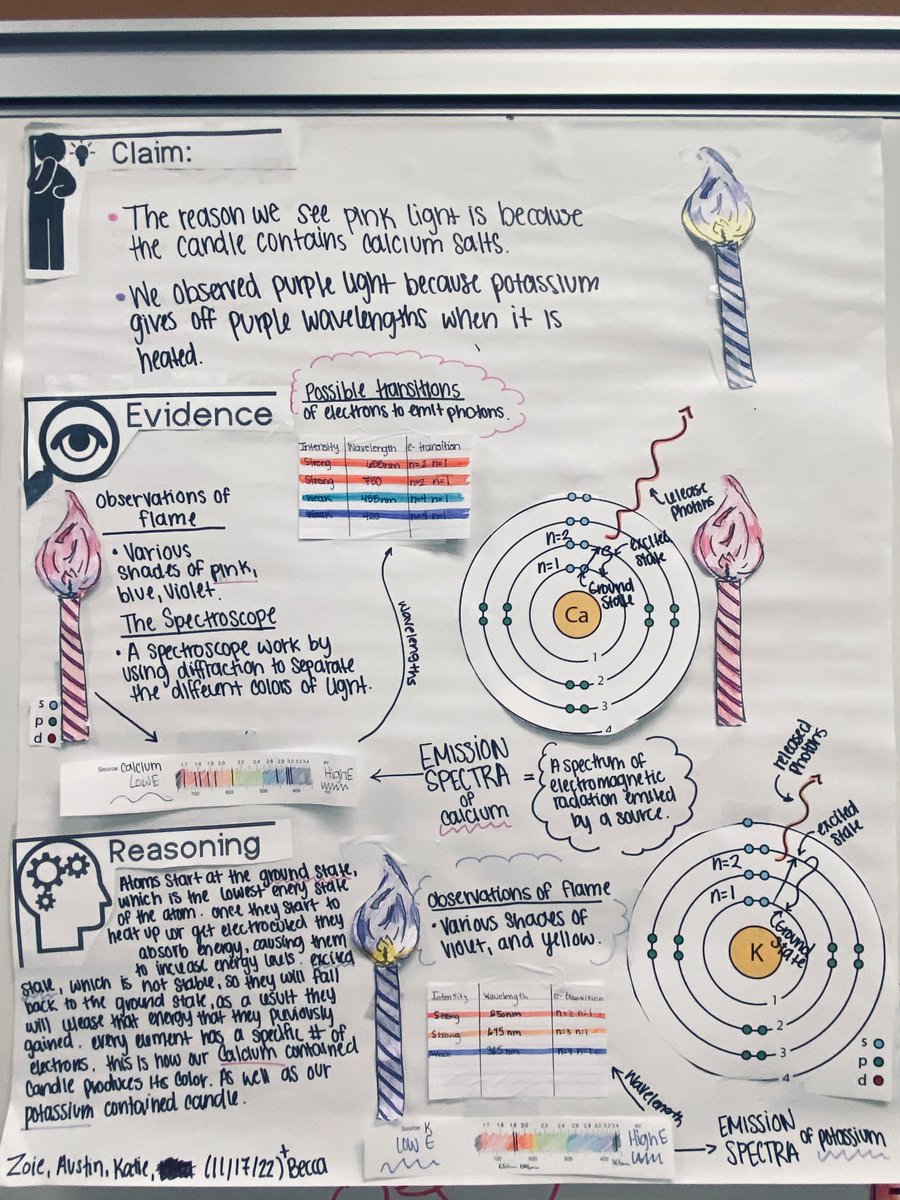 Claim:
• The reason we see pink light is because
the candle contains calcium salts.
• We observed purple light because potassium
gives off purple wavelengths when it is
heated.
Evidence
Possible transitions
of electrons to emit photons.
Intensity Wavelength e- transition
Strong 650nm n=2 n=1
Strong 750 n=2 n=1
Weak 455nm n=4 n=1
Weak 420 n=4 n=1
Observations of
flame
• Various
shades of pink,
blue, violet.
The Spectroscope
• A spectroscope work by
using diffraction to separate
the different colors of light.
s
p
d
wavelengths
release
photons
excited
state
n=2
n=1
e-
Ground
State
Ca
1
2
3
4
Source Calcium
LOW E
1.7 1.8 1.9 2.2 2.4 2.6 2.8 3.0 3.2 3.4 eV
700 600 500 400
High E
EMISSION
SPECTRA
OF
calcium
=
A spectrum of
electromagnetic
radiation emitted
by a source.
Reasoning
Atoms start at the ground state,
which is the lowest enery state
of the atom. once they start to
heat up or get electrocuted they
absorb energy, causing them
to increase energy levels. excited
state, which is not stable, so they will fall
back to the ground state, as a result they
will release that energy that they previously
gained. every element has a specific # of
electrons, this is how our Calcium contained
candle produces its color. As well as our
potassium contained candle.
Observations of flame
• Various shades of
violet, and yellow.
Intensity Wavelength e- transition
Strong 650nm n=2 n=1
Strong 695 nm n=3 n=1
365 nm
released
photons
excited
state
n=2
n=1
Ground
State
K
1
2
3
4
s
p
d
Wavelengths
Source K
LOW E
1.7 1.8 2.0
700 600 500 400
High E
EMISSION
SPECTRA OF potassium
Zoie, Austin, Katie, (11/17/22) + Becca